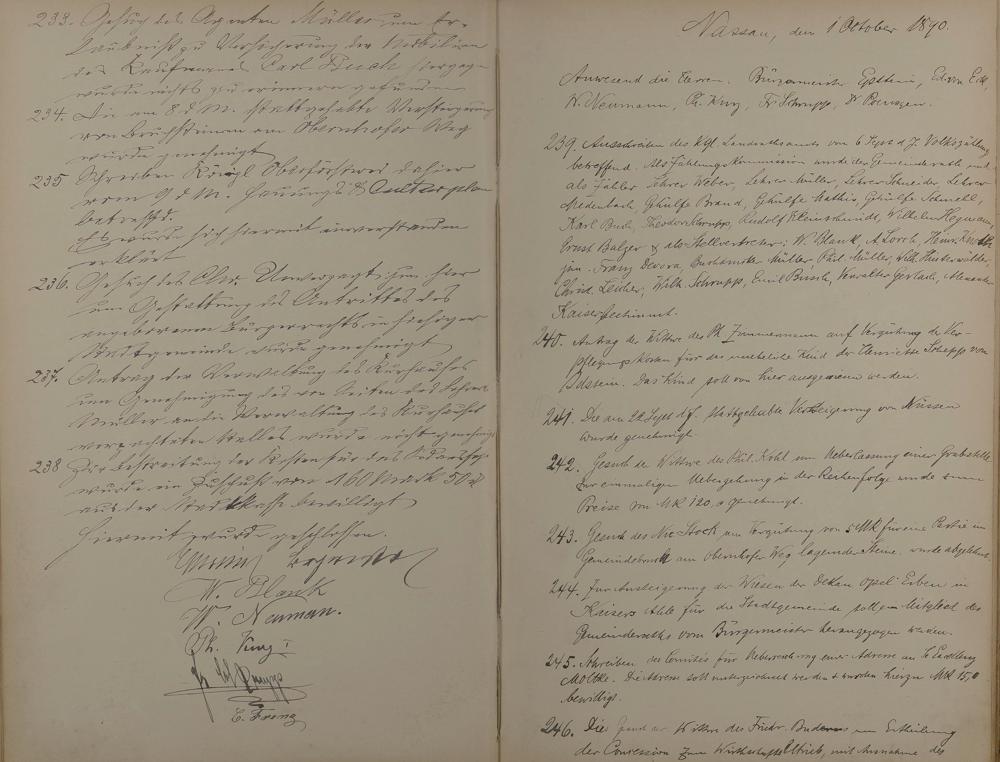 233. Gesuch des Agenten Müller um Er-
laubniß zu Versicherung der Mobilien
des Kaufmanns Carl Buch hiergegen
wurde nichts zu erinnern gefunden
234. Die am 8 d M. stattgehabte Versteigerung
von Bruchsteinen am Obernhofer Weg
wurde genehmigt
235 Schreiben Königl Oberförsterei dahier
vom 9 d M. Hauungs & Culturplan
betreffd.
Es wurde sich hiermit einverstanden
erklärt
236. Gesuch des Chr. hier
um Gestattung des Antrittes des
angeborenen Bürgerrechts in hiesiger
Stadtgemeinde wurde genehmigt
237. Antrag der Verwaltung des Kurhauses
um Genehmigung des von Seiten des
Müller an die Verwaltung des Kurhauses
verpachteten Stalles wurde nicht genehmigt
238 Zur Bestreitung der Kosten für das
wurde ein Zuschuß von 160 Mark 50
aus der Stadtkasse bewilligt
Hiermit wurde geschlossen.
W. Blank
W. Neuman.
Ph. Kurz I
Fr Schrupp
Nassau, den 1 October 1890.
Anwesend die Herren. Bürgermeister Epstein,
W. Neumann, Ph. Kurz, Fr Schrupp, W
239. Ausschreiben des Kgl. Landrathsamts vom 6 Sept d J. Volkszählung
betreffend. Als Zählungskommission wurde der Gemeinderath und
als Zähler Lehrer Weber, Lehrer Müller, Lehrer Schneider, Lehrer
Medenbach, Gehülfe Brand, Gehülfe Mathis, Gehülfe Schmehl,
Karl Buch, Theodor Schrupp, Rudolf Kleinschmidt, Wilhelm Hegmann
Ernst Balzer & als Stellvertreter: W. Blank, A. Lorch, Heinr.
jun. Franz Devora, Müller Phil. Müller, Wilh.
Christ. Leicher, Wilh. Schrupp, Emil Busch, Verwalter Gerlach, Alexander
Kaiser bestimmt.
240. Antrag der Wittwe des Ph. Zimmermann auf Vergütung der Ver-
pflegungskosten für das uneheliche Kind der Henriette Schepp von
Idstein. Das Kind soll von hier ausgewiesen werden.
241. Die am 22 Sept d J. stattgehabte Versteigerung von Nüssen
wurde genehmigt.
242. Gesuch der Wittwe des Phil. Kohl um Ueberlassung einer Grabstelle
zur einmaligen Uebergehung in der Reihenfolge wurde zum
Preise von MK 120,- genehmigt.
243. Gesuch des Nic Stock um Vergütung von 5 MK für eine Partie im
Gemeindebruch am Obernhofer Weg lagernde Steine. wurde abgelehnt.
244. Zur Ansteigerung der Wiesen der Dekan Opel Erben in
Kaisers für die Stadtgemeinde soll ein Mitglied des
Gemeinderaths vom Bürgermeister herangezogen werden.
245. Schreiben des Comités für Ueberreichung einer Adresse an
Moltke. Die Adresse soll unterzeichnet werden & wurden hierzu MK 15,0
bewilligt.
246. Die Wittwe des Friedr. um Ertheilung
der Concession zum Wirthschaftsbetrieb, mit Ausnahme des